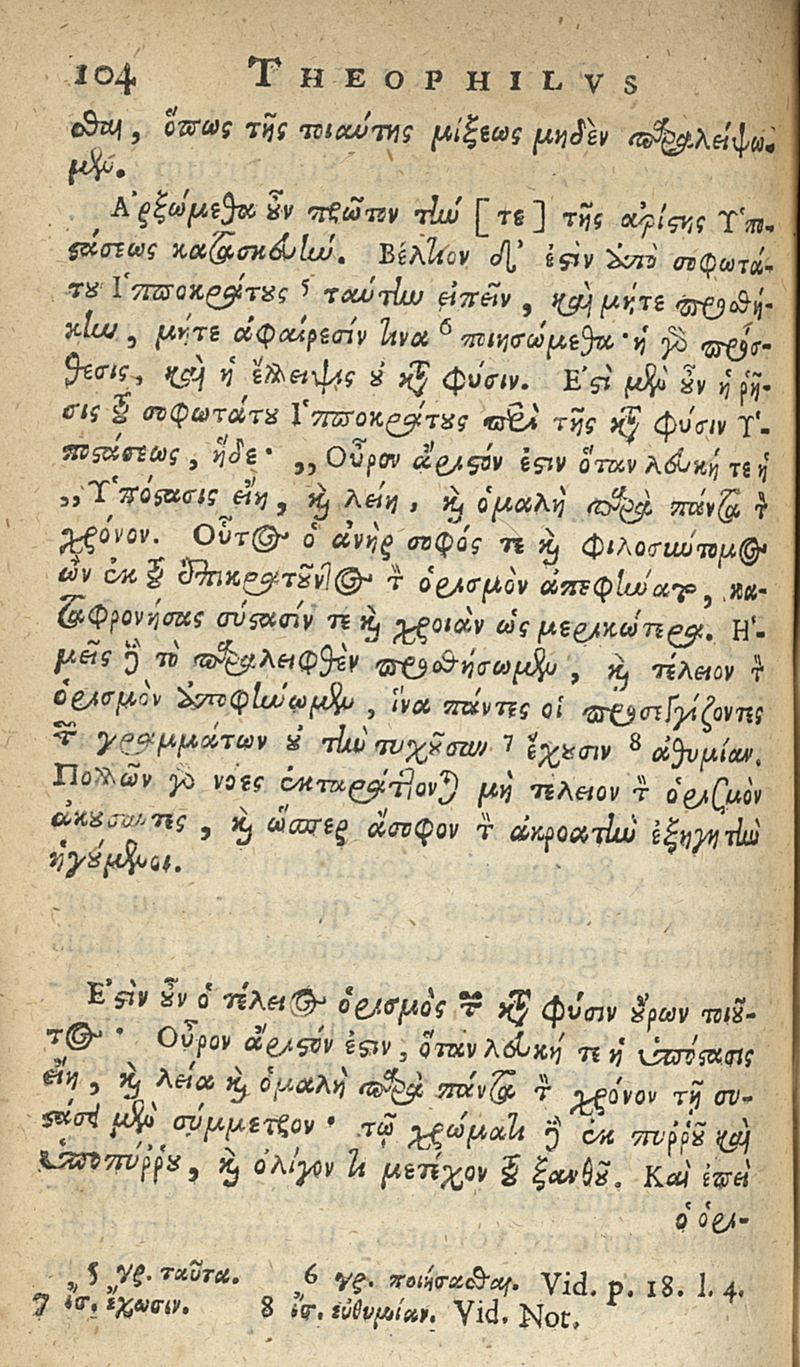 104 THEOPHILVS
σθαι, ὅπως τῆς τοιαύτης μίξεως μηδὲν παραλείψω-
μεν.
Ἀρξώμεθα οὖν πρῶτον τὴν [τε] τῆς ἀρίστης Ὑπο-
στάσεως κατασκευήν. Βέλτιον δ' ἐστὶν ὑπὸ σοφωτά-
του Ἱπποκράτους 5 ταύτην εἰπεῖν, καὶ μήτε προσθή-
κην, μήτε ἀφαίρεσίν τινα 6 ποιησώμεθα· ἡ γὰρ πρόσ-
θεσις, καὶ ἡ ἔλλειψις οὐ κατὰ φύσιν. Ἐστὶ μὲν οὖν ἡ ῥῆ-
σις τοῦ σοφωτάτου Ἱπποκράτους περὶ τῆς κατὰ φύσιν Ὑ-
ποστάσεως, ἥδε· ,,Οὖρον ἄριστόν ἐστιν ὅταν λευκή τε ἡ
,,Ὑπόστασις εἴη, καὶ λείη, καὶ ὁμαλὴ παρὰ πάντα τὸν
χρόνον. Οὗτος ὁ ἀνὴρ σοφός τε καὶ φιλοσύντομος
ὢν ἐκ τοῦ ἐπικρατοῦντος τὸν ὁρισμὸν ἀπεφήνατο, κα-
ταφρονήσας σύστασίν τε καὶ χροιὰν ὡς μερικώτερα. Ἡ-
μεῖς δὲ τὸ παραλειφθὲν προσθήσωμεν, καὶ τέλειον τὸν
ὁρισμὸν ἀποφήνωμεν, ἵνα πάντες οἱ προσεγγίζοντες
τῶν γραμμάτων οὐ τὴν τυχοῦσαν 7 ἔχουσιν 8 ἀθυμίαν.
Πολλῶν γὰρ νόες ἐκταράττονται μὴ τέλειον τὸν ὁριζμὸν
ἀκούσαντες, καὶ ὥσπερ ἄσοφον τὸν ἀκροατὴν ἐξηγητὴν
ἡγούμενοι.
Ἐστὶν οὖν ὁ τέλειος ὁρισμὸς τῶν κατὰ φύσιν οὔρων τοιοῦ-
τος· Οὖρον ἄριστόν ἐστιν, ὅταν λευκή τε ἡ ὑπόστασις
εἴη, καὶ λεία καὶ ὁμαλὴ παρὰ πάντα τὸν χρόνον τῇ συ-
στάσει μὲν σύμμετρον· τῷ χρώματι δὲ ἐκ πυῤῥοῦ καὶ
ὑποπύῤῥου, καὶ ὀλίγον τι μετέχον τοῦ ξανθοῦ. Καὶ ἐπεὶ
ὁ ὁρι-
,, 5 γρ. ταῦτα. ,, 6 γρ. ποιήσασθαι. Vid. p. 18. l. 4.
7 ἴσ. ἔχωσιν. 8 ἴσ. εὐθυμίαν. Vid. Not.